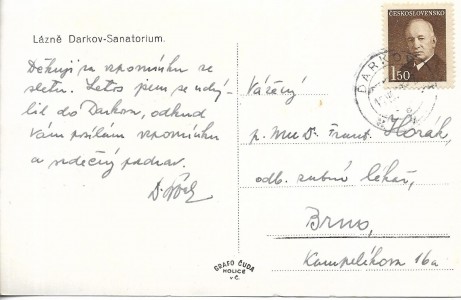 Lázně Darkov-Sanatorium.
Děkuji za vzpomínku ze
sletu. Letos jsem se uchý-
lil do Darkova, odkud
Vám posílám vzpomínku
a srdečný pozdrav.
ČESKOSLOVENSKO
1.50
DARKOV
Vážený
p. MUDr. Frant. Horák,
odb. zubní lékař,
Brno,
Kampelíkova 16a
GRAFO ČUDA
HOLICE
v Č.